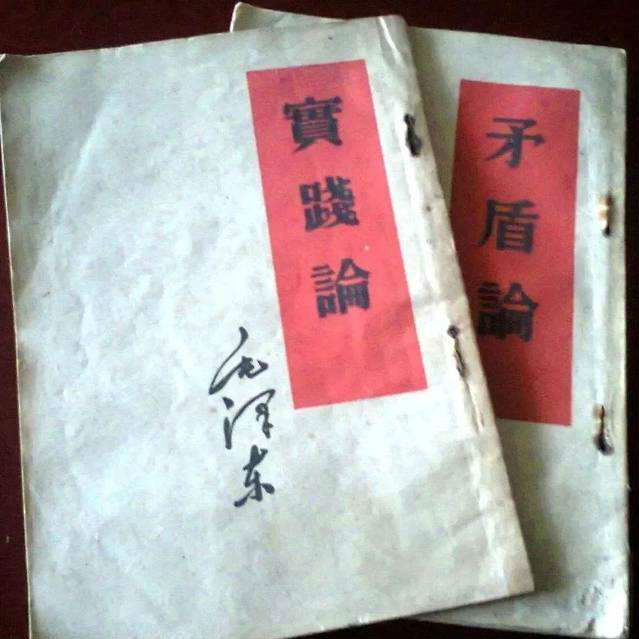 實踐論
毛泽东
矛盾論